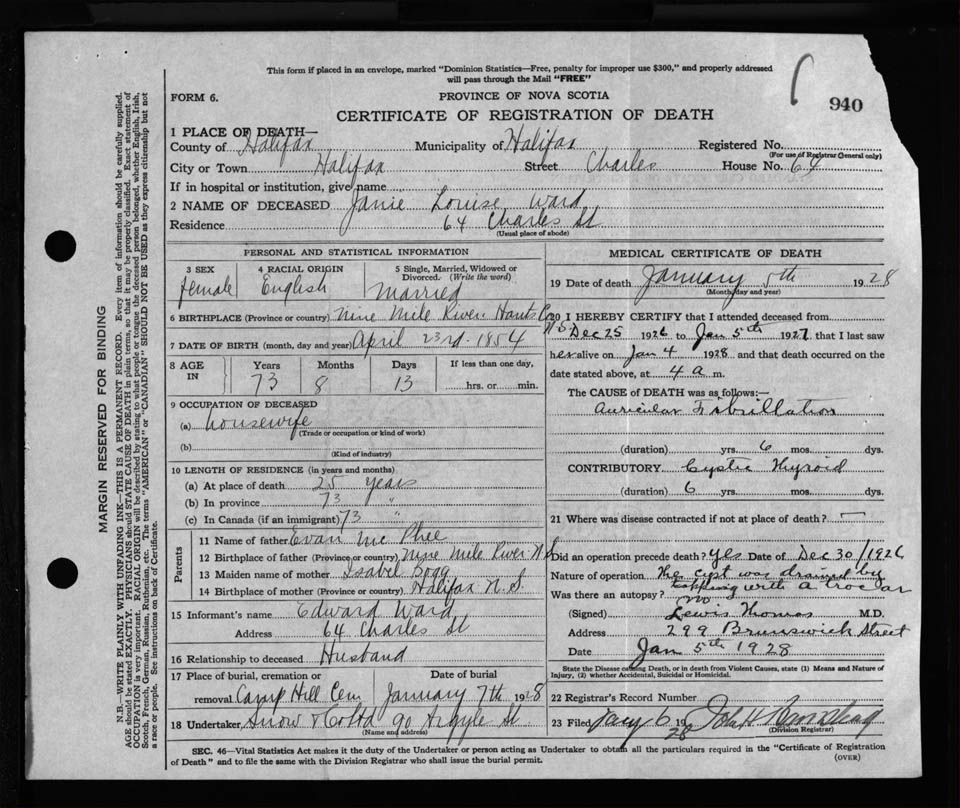 This form if placed in an envelope, marked "Dominion Statistics—Free, penalty for improper use $300," and properly addressed
will pass through the Mail "FREE"
FORM 6.
PROVINCE OF NOVA SCOTIA
940
CERTIFICATE OF REGISTRATION OF DEATH
1 PLACE OF DEATH—
County of Halifax Municipality of Halifax Registered No.
(For use of Registrar General only)
City or Town Halifax Street Charles House No. 64
If in hospital or institution, give name
2 NAME OF DECEASED Janie Louise Ward
Residence 64 Charles St
(Usual place of abode)
PERSONAL AND STATISTICAL INFORMATION
3 SEX 4 RACIAL ORIGIN 5 Single, Married, Widowed or
Divorced. (Write the word)
female English Married
6 BIRTHPLACE (Province or country) Nine Mile River Hants Co
N.S.
7 DATE OF BIRTH (month, day and year) April 23rd. 1854
8 AGE IN Years Months Days If less than one day,
73 8 13 hrs. or min.
9 OCCUPATION OF DECEASED
(a) housewife
(Trade or occupation or kind of work)
(b)
(Kind of industry)
10 LENGTH OF RESIDENCE (in years and months)
(a) At place of death 25 years
(b) In province 73 "
(c) In Canada (if an immigrant) 73 "
Parents
11 Name of father Evan Mc Phee
12 Birthplace of father (Province or country) Nine Mile River N.S
13 Maiden name of mother Isabel
14 Birthplace of mother (Province or country) Halifax N.S.
15 Informant's name Edward Ward
Address 64 Charles St
16 Relationship to deceased Husband
17 Place of burial, cremation or Date of burial
removal Camp Hill Cem January 7th 1928
18 Undertaker Snow & Co Ltd 90 Argyle St
(Name and address)
MEDICAL CERTIFICATE OF DEATH
19 Date of death January 5th 1928
(Month, day and year)
20 I HEREBY CERTIFY that I attended deceased from
Dec 25 1926 to Jan 5th 1927 that I last saw
her alive on Jan 4 1928 and that death occurred on the
date stated above, at 4 a m.
The CAUSE OF DEATH was as follows:—
Auricular Fibrillation
(duration) yrs. 6 mos. dys.
CONTRIBUTORY Cystic Thyroid
(duration) 6 yrs. mos. dys.
21 Where was disease contracted if not at place of death? —
Did an operation precede death? Yes Date of Dec 30/1926
Nature of operation The cyst was drained by
tapping with a trocar
Was there an autopsy? no
(Signed) Lewis Thomas M.D.
Address 299 Brunswick Street
Date Jan 5th 1928
State the Disease causing Death, or in death from Violent Causes, state (1) Means and Nature of
Injury, (2) whether Accidental, Suicidal or Homicidal.
22 Registrar's Record Number
23 Filed Jany 6 1928 John H
(Division Registrar)
SEC. 46—Vital Statistics Act makes it the duty of the Undertaker or person acting as Undertaker to obtain all the particulars required in the "Certificate of Registration
of Death" and to file the same with the Division Registrar who shall issue the burial permit.
(OVER)
MARGIN RESERVED FOR BINDING
N.B.—WRITE PLAINLY WITH UNFADING INK—THIS IS A PERMANENT RECORD. Every item of information should be carefully supplied.
AGE should be stated EXACTLY. PHYSICIANS should STATE CAUSE OF DEATH in plain terms, so that it may be properly classified. Exact statement of
OCCUPATION is very important. RACIAL ORIGIN will be described by stating to what people or tongue the deceased person belonged, whether English, Irish,
Scotch, French, German, Russian, Ruthenian, etc. The terms "AMERICAN" or "CANADIAN" SHOULD NOT BE USED as they express citizenship but not
a race or people. See instructions on back of Certificate.